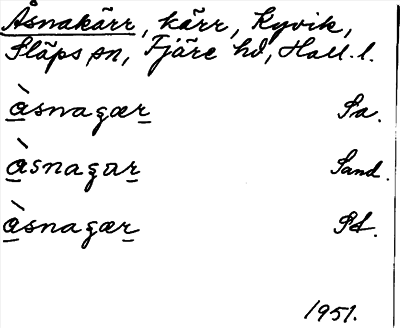 Åsnakärr, kärr, Kyvik,
Släps sn, Fjäre hd, Hall. l.
àsnagær Pa.
àsnagar Sand.
àsnagær
1951.